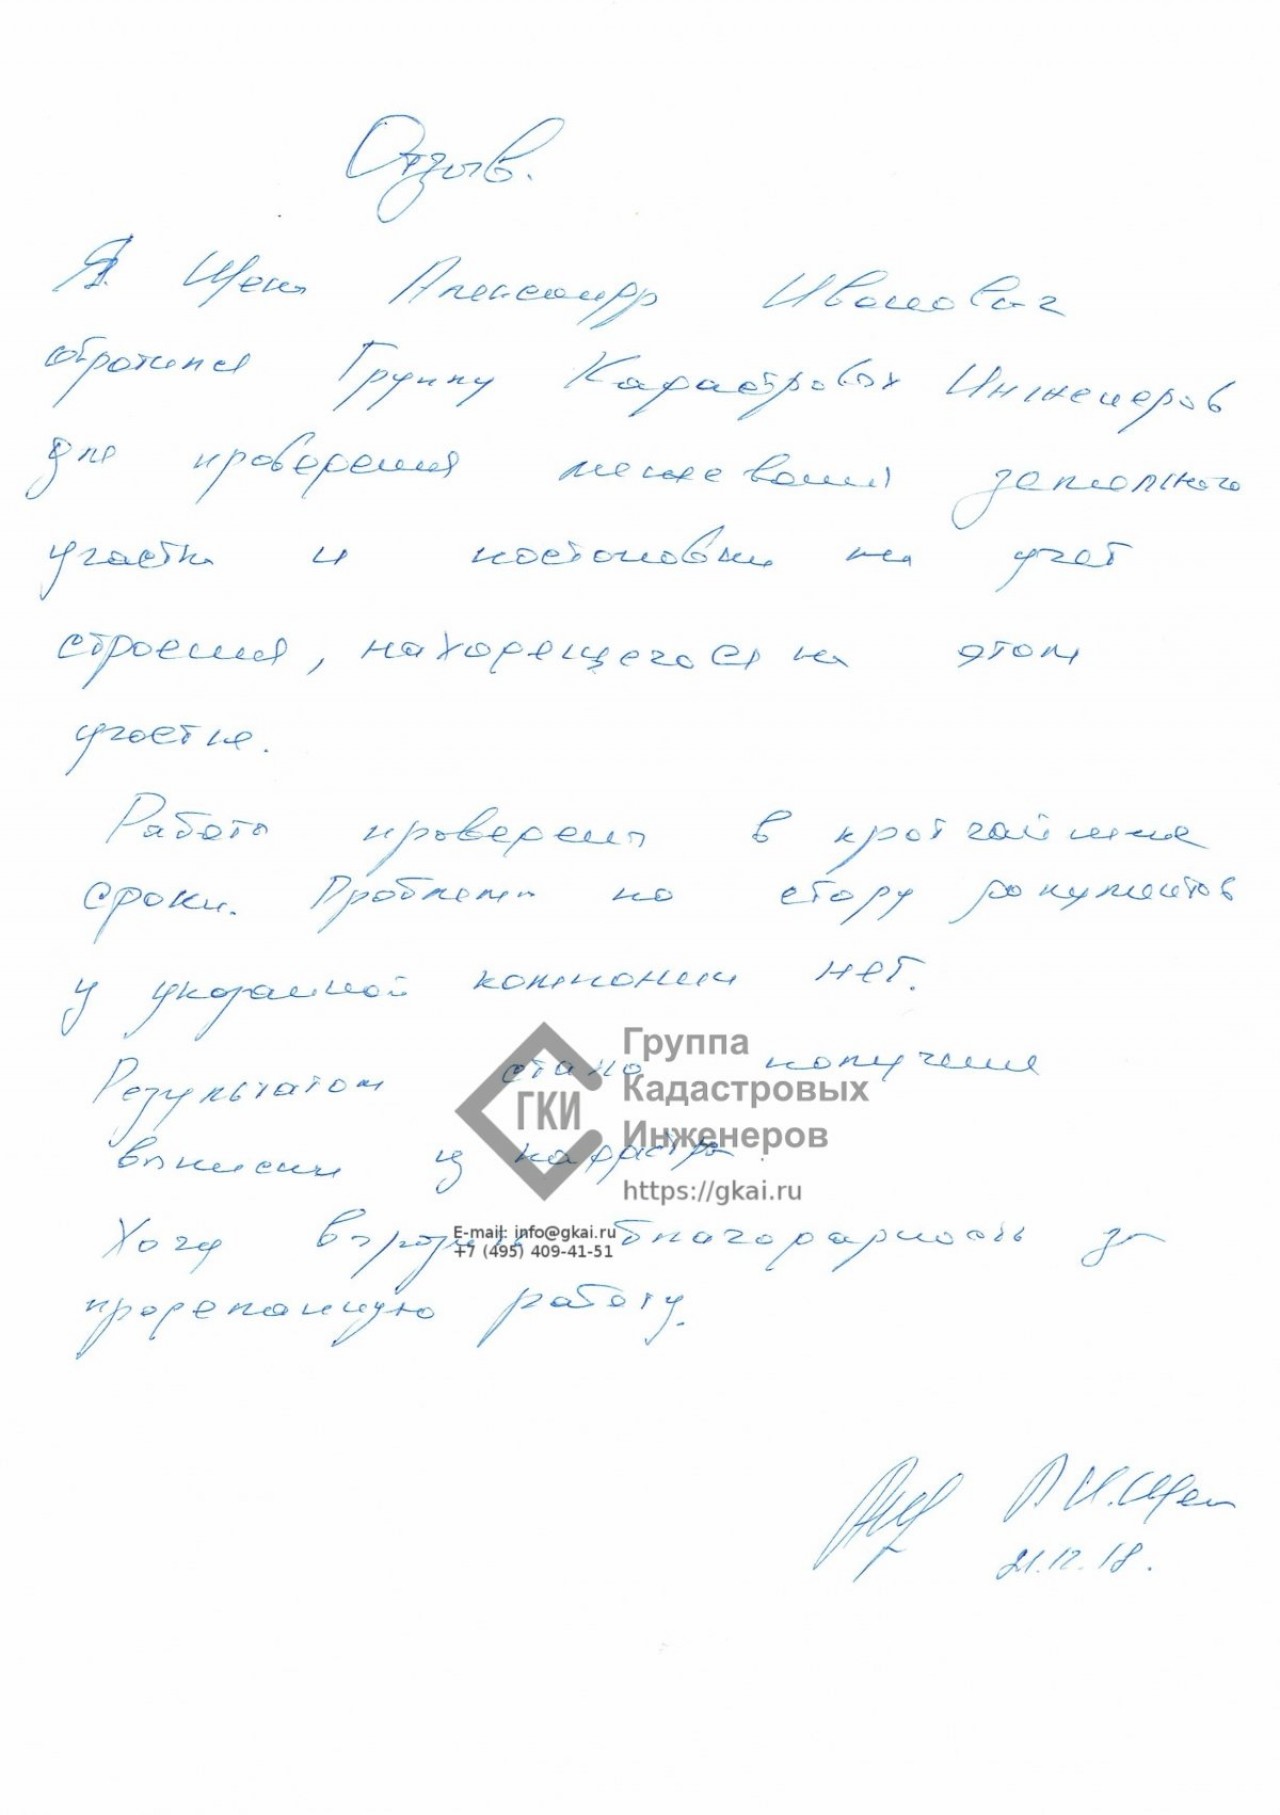 Отзыв.
Я Щена Александр Иванович
обратился Группу Кадастровых Инженеров
для проведения межевания земельного
участка и постановки на учет
строения, находящегося на этом
участке.
Работа проведена в кротчайшие
сроки. Проблем по сбору документов
у указанной компании нет.
Результатом стало получение
выписки из кадастра.
Хочу выразить благодарность за
проделанную работу.
Группа
Кадастровых
Инженеров
ГКИ
https://gkai.ru
E-mail: info@gkai.ru
+7 (495) 409-41-51
А.И. Щена
21.12.18.